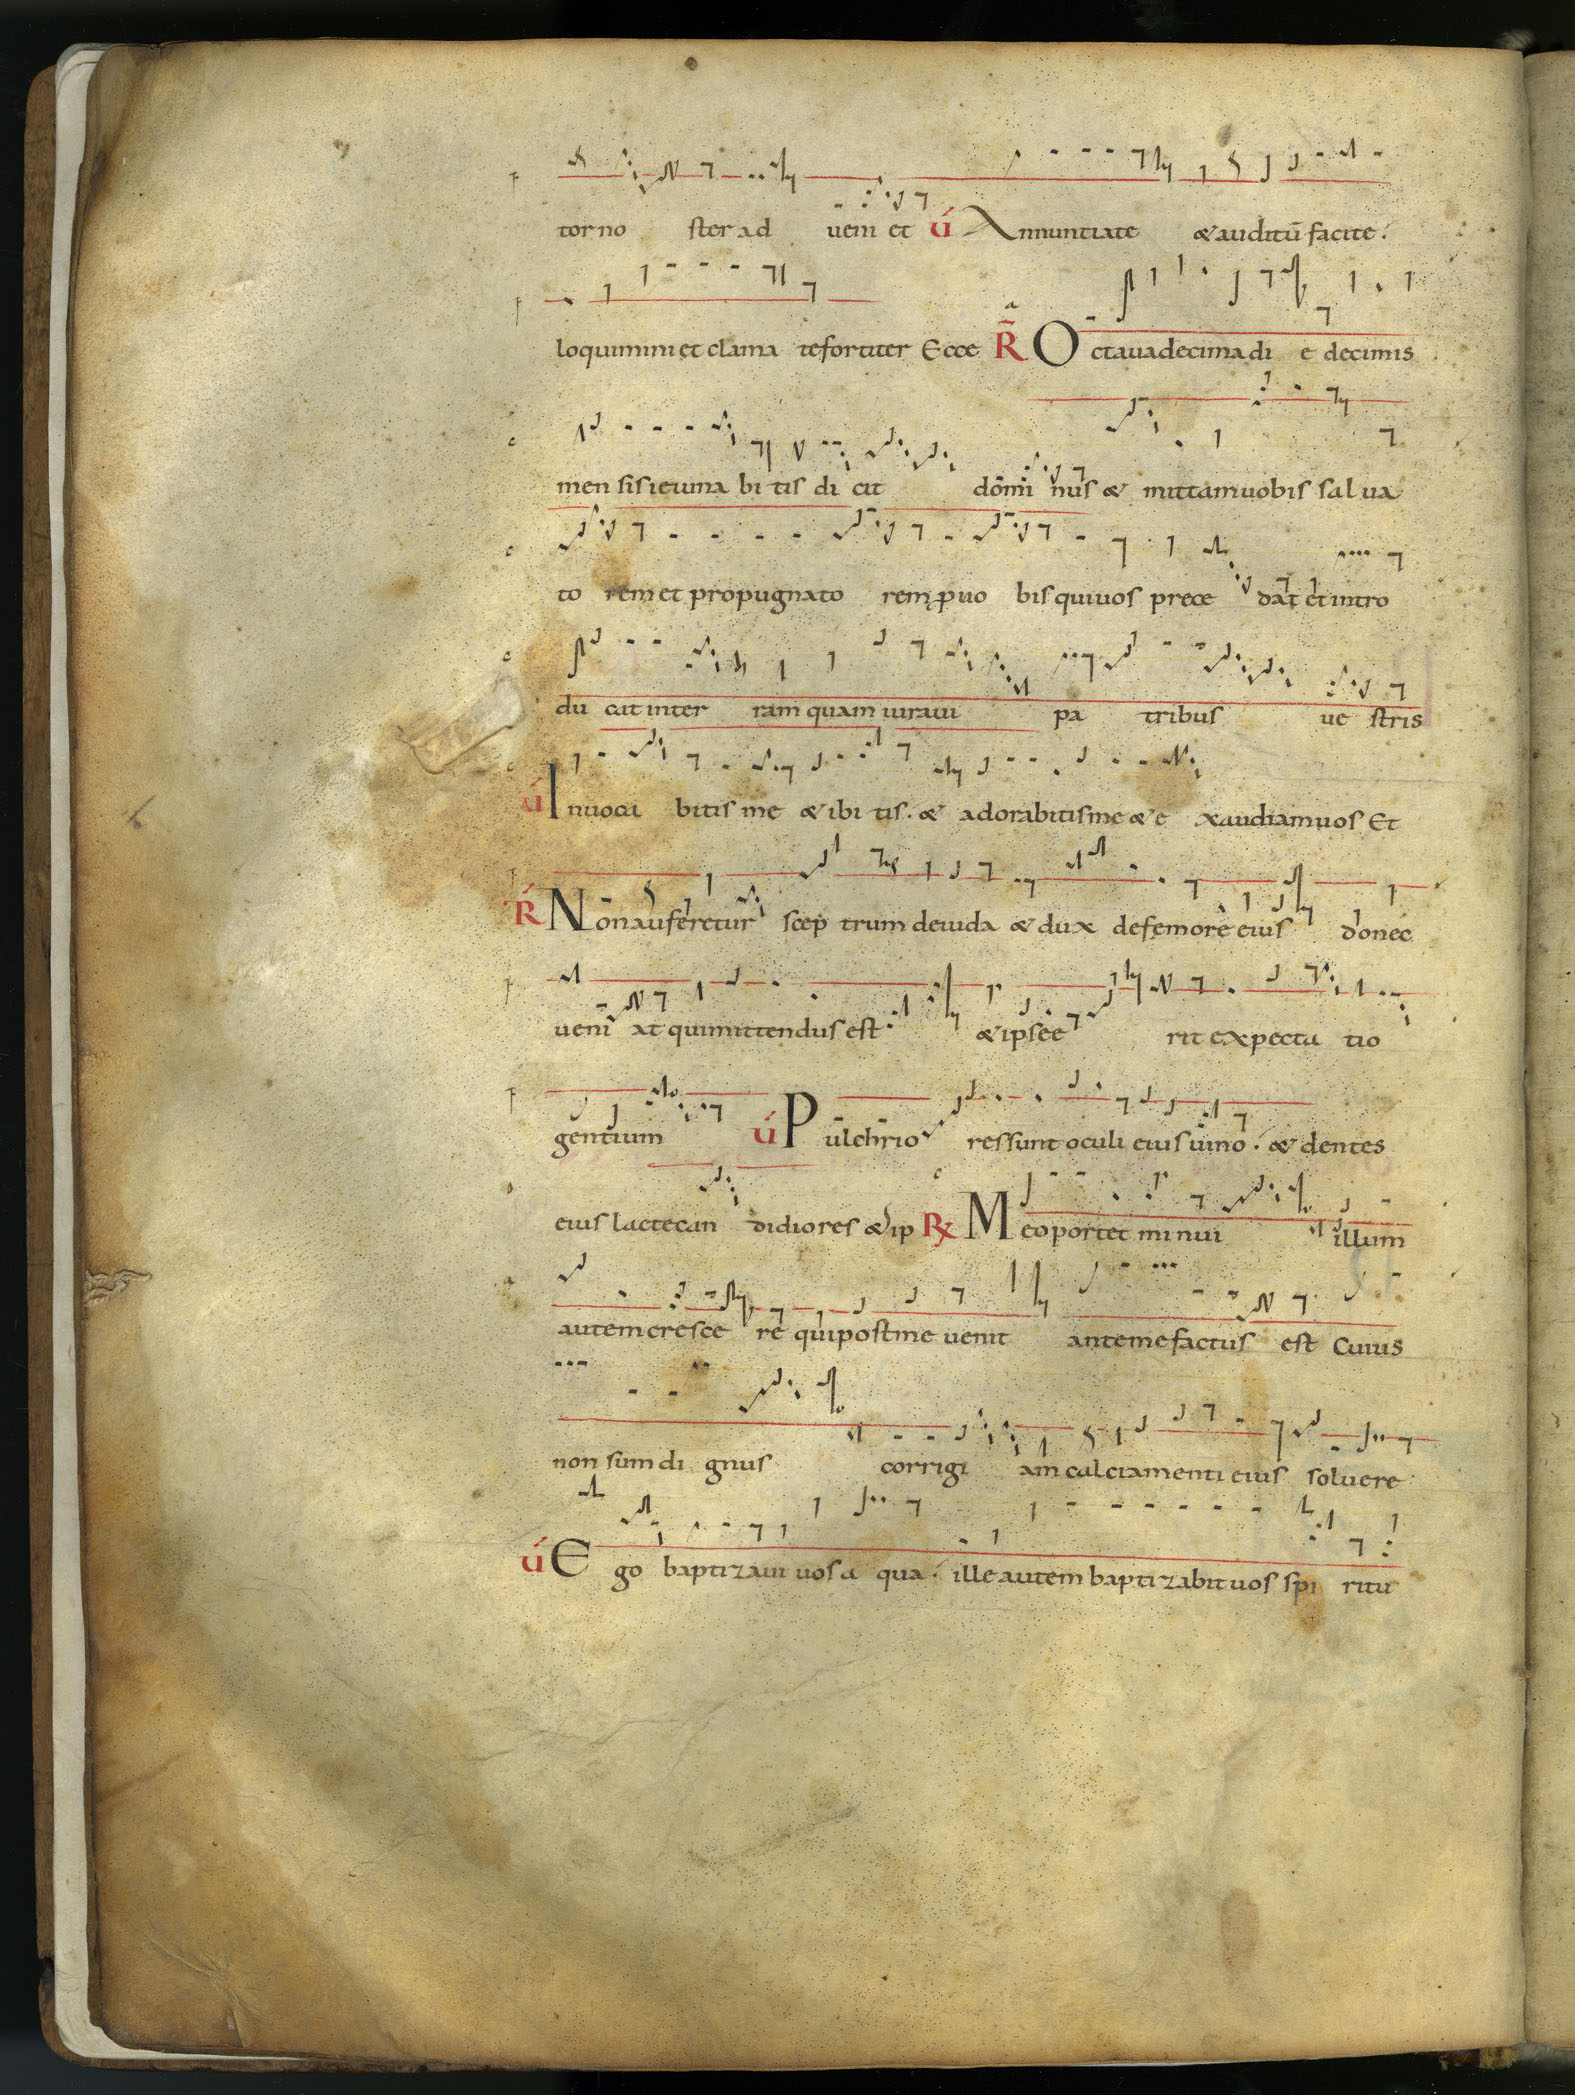 tor no ster ad ueni et ú Annuntiate & auditū facite.
loquimini et clama te fortiter Ecce R̃ Octaua decima di e decimi s
men sis ieiuna bi tis di cit domi nus & mittam uobis salua
to rem et propugnato rem ꝓ uo bis qui uos prece dat et intro
du cat in ter ram quam iuraui pa tribus ue stris
ú Inuoca bitis me & ibi tis. & adorabitis me & e xaudiam uos Et
R̃ Non auferetur scep trum de iuda & dux de femore eius donec
ueni at qui mittendus est & ipse e rit expecta tio
gentium ú Pulchrio res sunt oculi eius uino. & dentes
eius lacte can didiores & ip R̃ Me oportet minui illum
autem cresce re qui post me uenit ante me factus est Cuius
non sum di gnus corrigi am calciamenti eius soluere
ú Ego baptizaui uos a qua. ille autem baptizabit uos spi ritu